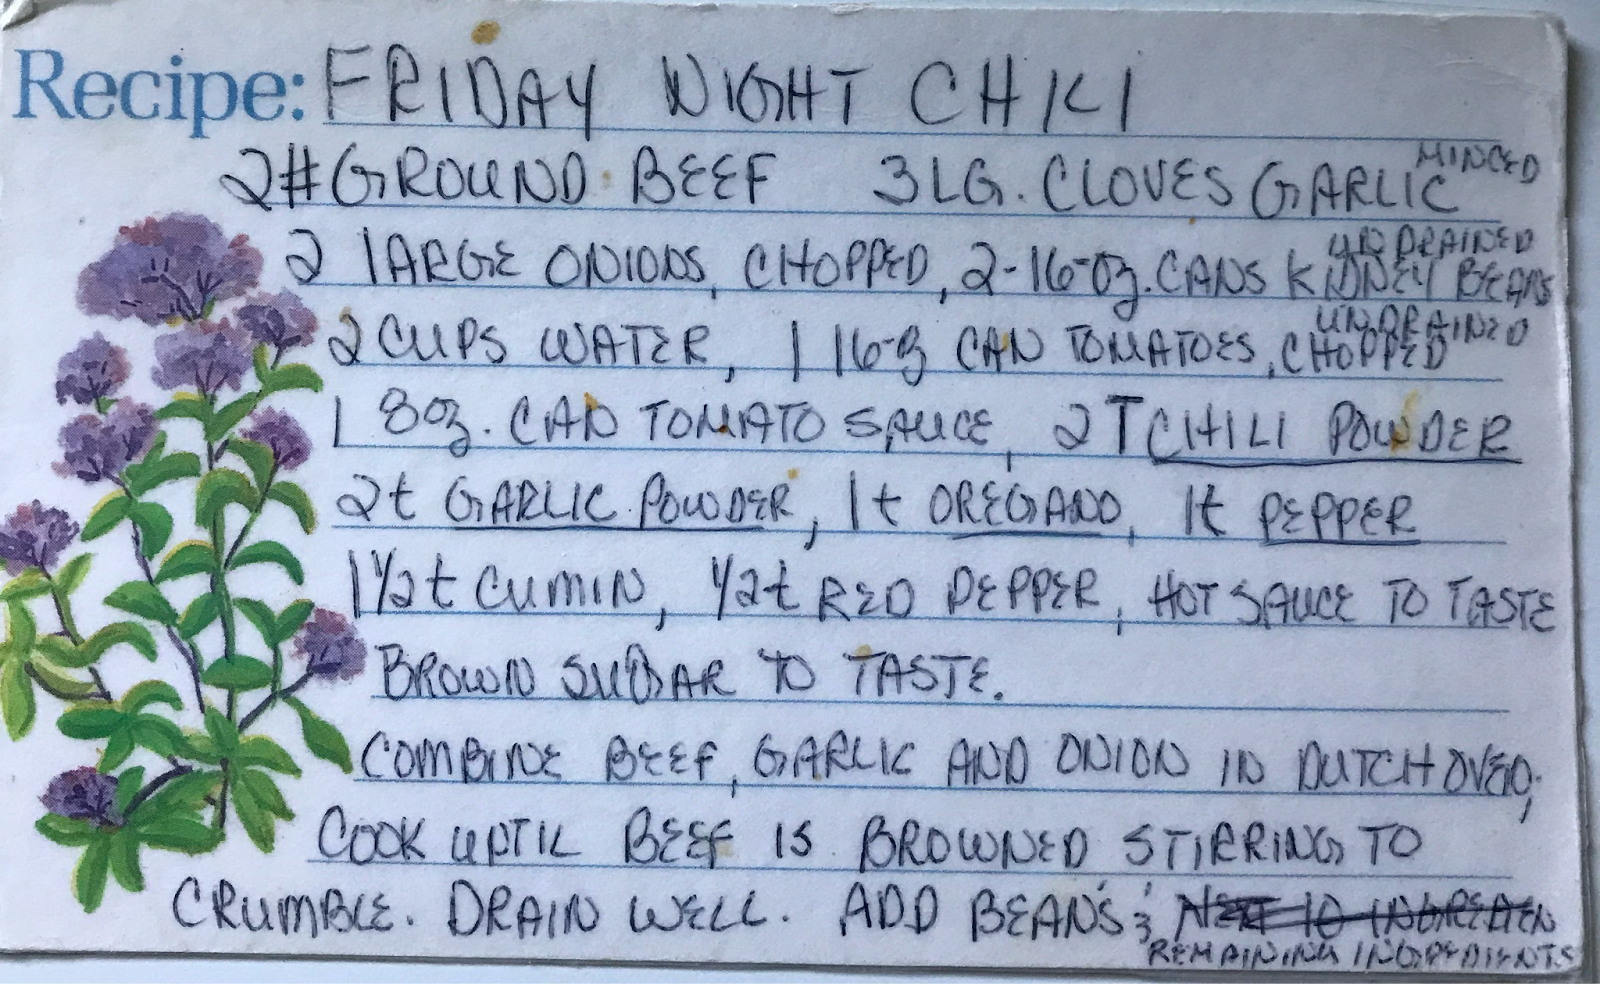 Recipe: FRIDAY NIGHT CHILI
2# GROUND BEEF 3 LG. CLOVES GARLIC MINCED
2 LARGE ONIONS, CHOPPED, 2-16-oz. CANS KIDNEY BEANS UNDRAINED
2 CUPS WATER, 1 16-oz CAN TOMATOES, CHOPPED UNDRAINED
1 8oz. CAN TOMATO SAUCE, 2T CHILI POWDER
2t GARLIC POWDER, 1t OREGANO, 1t PEPPER
1 1/2t CUMIN, 1/2t RED PEPPER, HOT SAUCE TO TASTE
BROWN SUGAR TO TASTE.
COMBINE BEEF, GARLIC AND ONION IN DUTCH OVEN;
COOK UNTIL BEEF IS BROWNED STIRRING TO
CRUMBLE. DRAIN WELL. ADD BEANS & NEXT 10 INGREDIEN
REMAINING INGREDIENTS